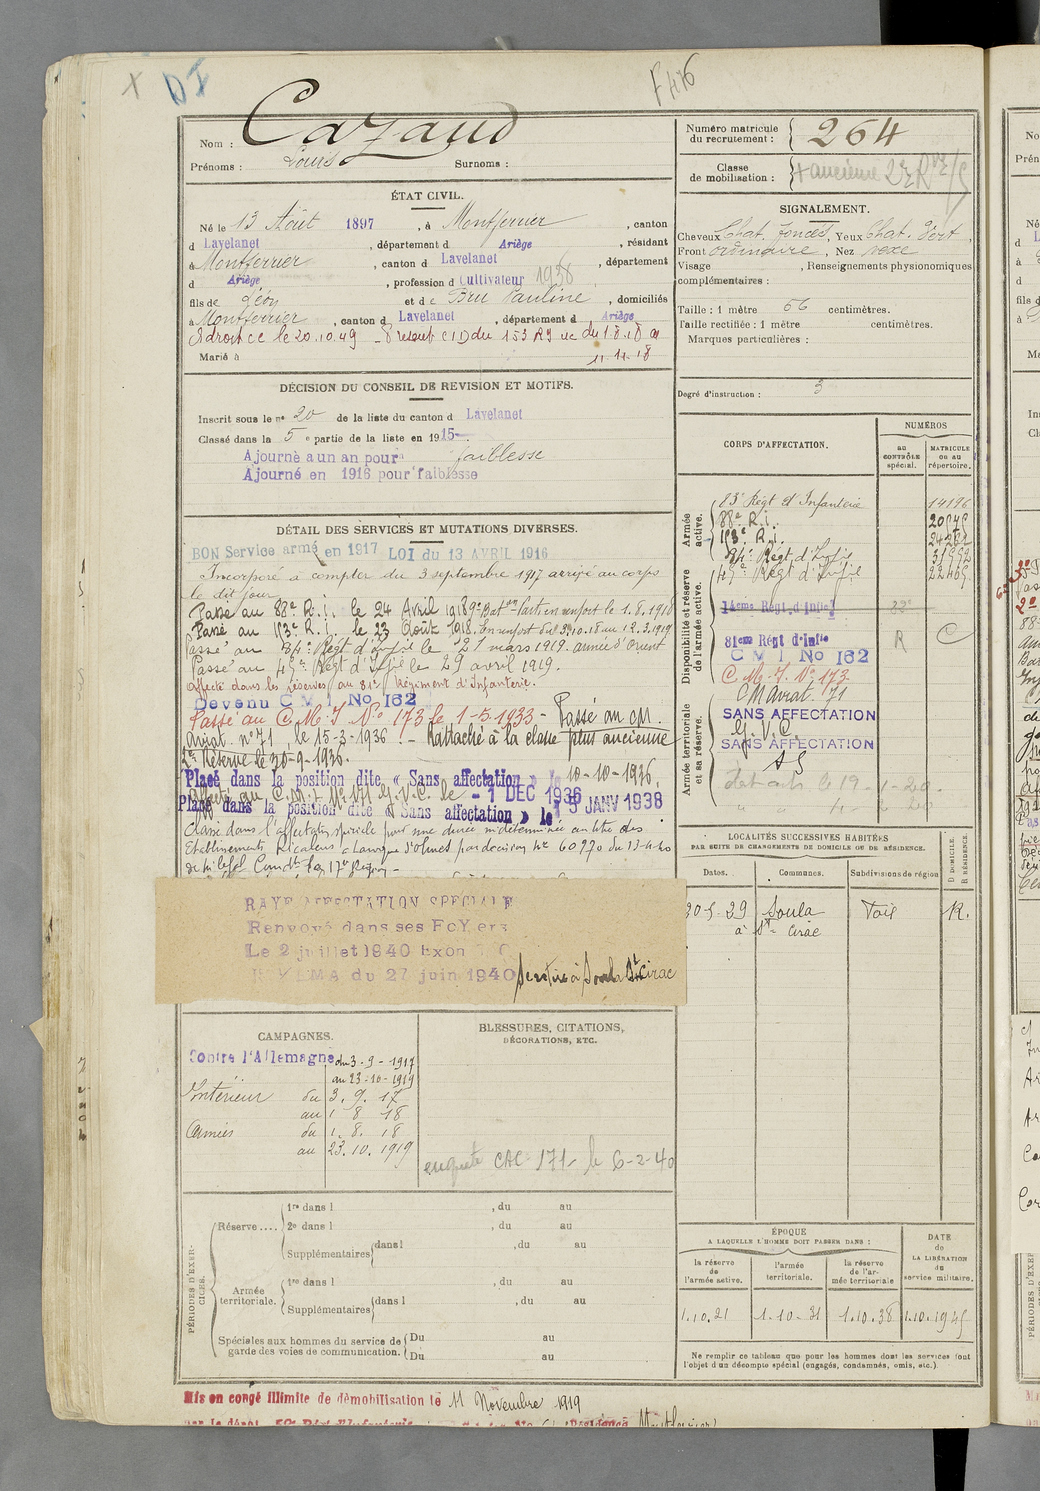 X DI
F 416
Nom : Cazaud
Prénoms : Louis Surnoms :
Numéro matricule du recrutement : 264
Classe de mobilisation : + ancienne 2e Rve
ÉTAT CIVIL.
Né le 13 Août 1897, à Montferrier, canton
d Lavelanet, département d Ariège, résidant
à Montferrier, canton d Lavelanet, département
d Ariège, profession d Cultivateur 1936
fils de Léon et de Bru Pauline, domiciliés
à Montferrier, canton d Lavelanet, département d Ariège
du 1.8.18 au
Marié à 11.11.18
SIGNALEMENT.
Cheveux Chat. foncés, Yeux Chat. Vert,
Front ordinaire, Nez vexe
Visage , Renseignements physionomiques
complémentaires :
Taille : 1 mètre 56 centimètres.
Taille rectifiée : 1 mètre centimètres.
Marques particulières :
Degré d'instruction : 3
DÉCISION DU CONSEIL DE REVISION ET MOTIFS.
Inscrit sous le nº 20 de la liste du canton d Lavelanet
Classé dans la 5e partie de la liste en 1915
Ajourné a un an pour faiblesse
Ajourné en 1916 pour faiblesse
DÉTAIL DES SERVICES ET MUTATIONS DIVERSES.
BON Service armé en 1917 LOI du 13 AVRIL 1916
Incorporé à compter du 3 septembre 1917 arrivé au corps
le dit jour
Passé au 88e R.i. le 24 Avril 1918 9e Baton Parti en renfort le 1.8.1918
Passé au 153e R.i. le 23 Août 1918. En renfort du 3.10.18 au 12.3.1919
Passé au 84e Régt d'Infie le 21 mars 1919. armée d'Orient
Passé au 45e Régt d'Infie le 29 avril 1919.
affecté dans les réserves au 81e Régiment d'Infanterie.
Devenu C M I No 162
Passé au C.M.I. No 173 le 1-5-1933 - Passé au CM.
Aviat. nº 71 le 15-3-1936. - Rattaché à la classe plus ancienne
2e Réserve le 30-9-1936.
Placé dans la position dite « Sans affectation » le 10-10-1936
G.V.C. le - 1 DEC 1936
Placé dans la position dite « Sans affectation » le 15 JANV 1938
Classé dans l'affectation spéciale pour une durée indéterminée au titre des
Etablissements Ricalens à Laroque d'Olmes par décision nº 60970 du 13-4-40
de M. le Gal Comdt la 17e Région -
RAYE AFFECTATION SPECIALE
Renvoyé dans ses Foyers
Le 2 juillet 1940 Exon
du 27 juin 1940
Se retire à Soula St Cirac
CORPS D'AFFECTATION.
NUMÉROS
AU CONTRÔLE spécial.
MATRICULE ou au répertoire.
Armée active.
83e Régt d'Infanterie 14196
88e R.i.
153e R.i.
84e Régt d'Infie
45e Régt d'Infie
Disponibilité et réserve de l'armée active.
14eme Régt d'Infie
81em Régt d'Infie R C
C M I No 162
C.M.I. No 173
CM Aviat. 71
Armée territoriale et sa réserve.
SANS AFFECTATION
G.V.C.
SANS AFFECTATION
AS
LOCALITÉS SUCCESSIVES HABITÉES
PAR SUITE DE CHANGEMENTS DE DOMICILE OU DE RÉSIDENCE.
Dates. Communes. Subdivisions de région D DOMICILE. R RÉSIDENCE.
30-5-29 Soula Foix R.
à St- Cirac
CAMPAGNES.
Contre l'Allemagne du 3-9-1917
au 23-10-1919
Intérieur du 3. 9. 17
au 1 8 18
Armées du 1. 8. 18
au 23. 10. 1919
BLESSURES, CITATIONS,
DÉCORATIONS, ETC.
enquête CAC 171- le 6-2-40
PÉRIODES D'EXERCICES.
Réserve....
1re dans l , du au
2e dans l , du au
Supplémentaires dans l , du au
Armée territoriale.
1re dans l , du au
Supplémentaires dans l , du au
Spéciales aux hommes du service de garde des voies de communication.
Du au
Du au
ÉPOQUE
A LAQUELLE L'HOMME DOIT PASSER DANS :
la réserve de l'armée active.
l'armée territoriale.
la réserve de l'armée territoriale
DATE de LA LIBÉRATION du service militaire.
1.10.21 1-10-31 1.10.38 1.10.1945
Ne remplir ce tableau que pour les hommes dont les services font
l'objet d'un décompte spécial (engagés, condamnés, omis, etc.)
Mis en congé illimité de démobilisation le 11 Novembre 1919